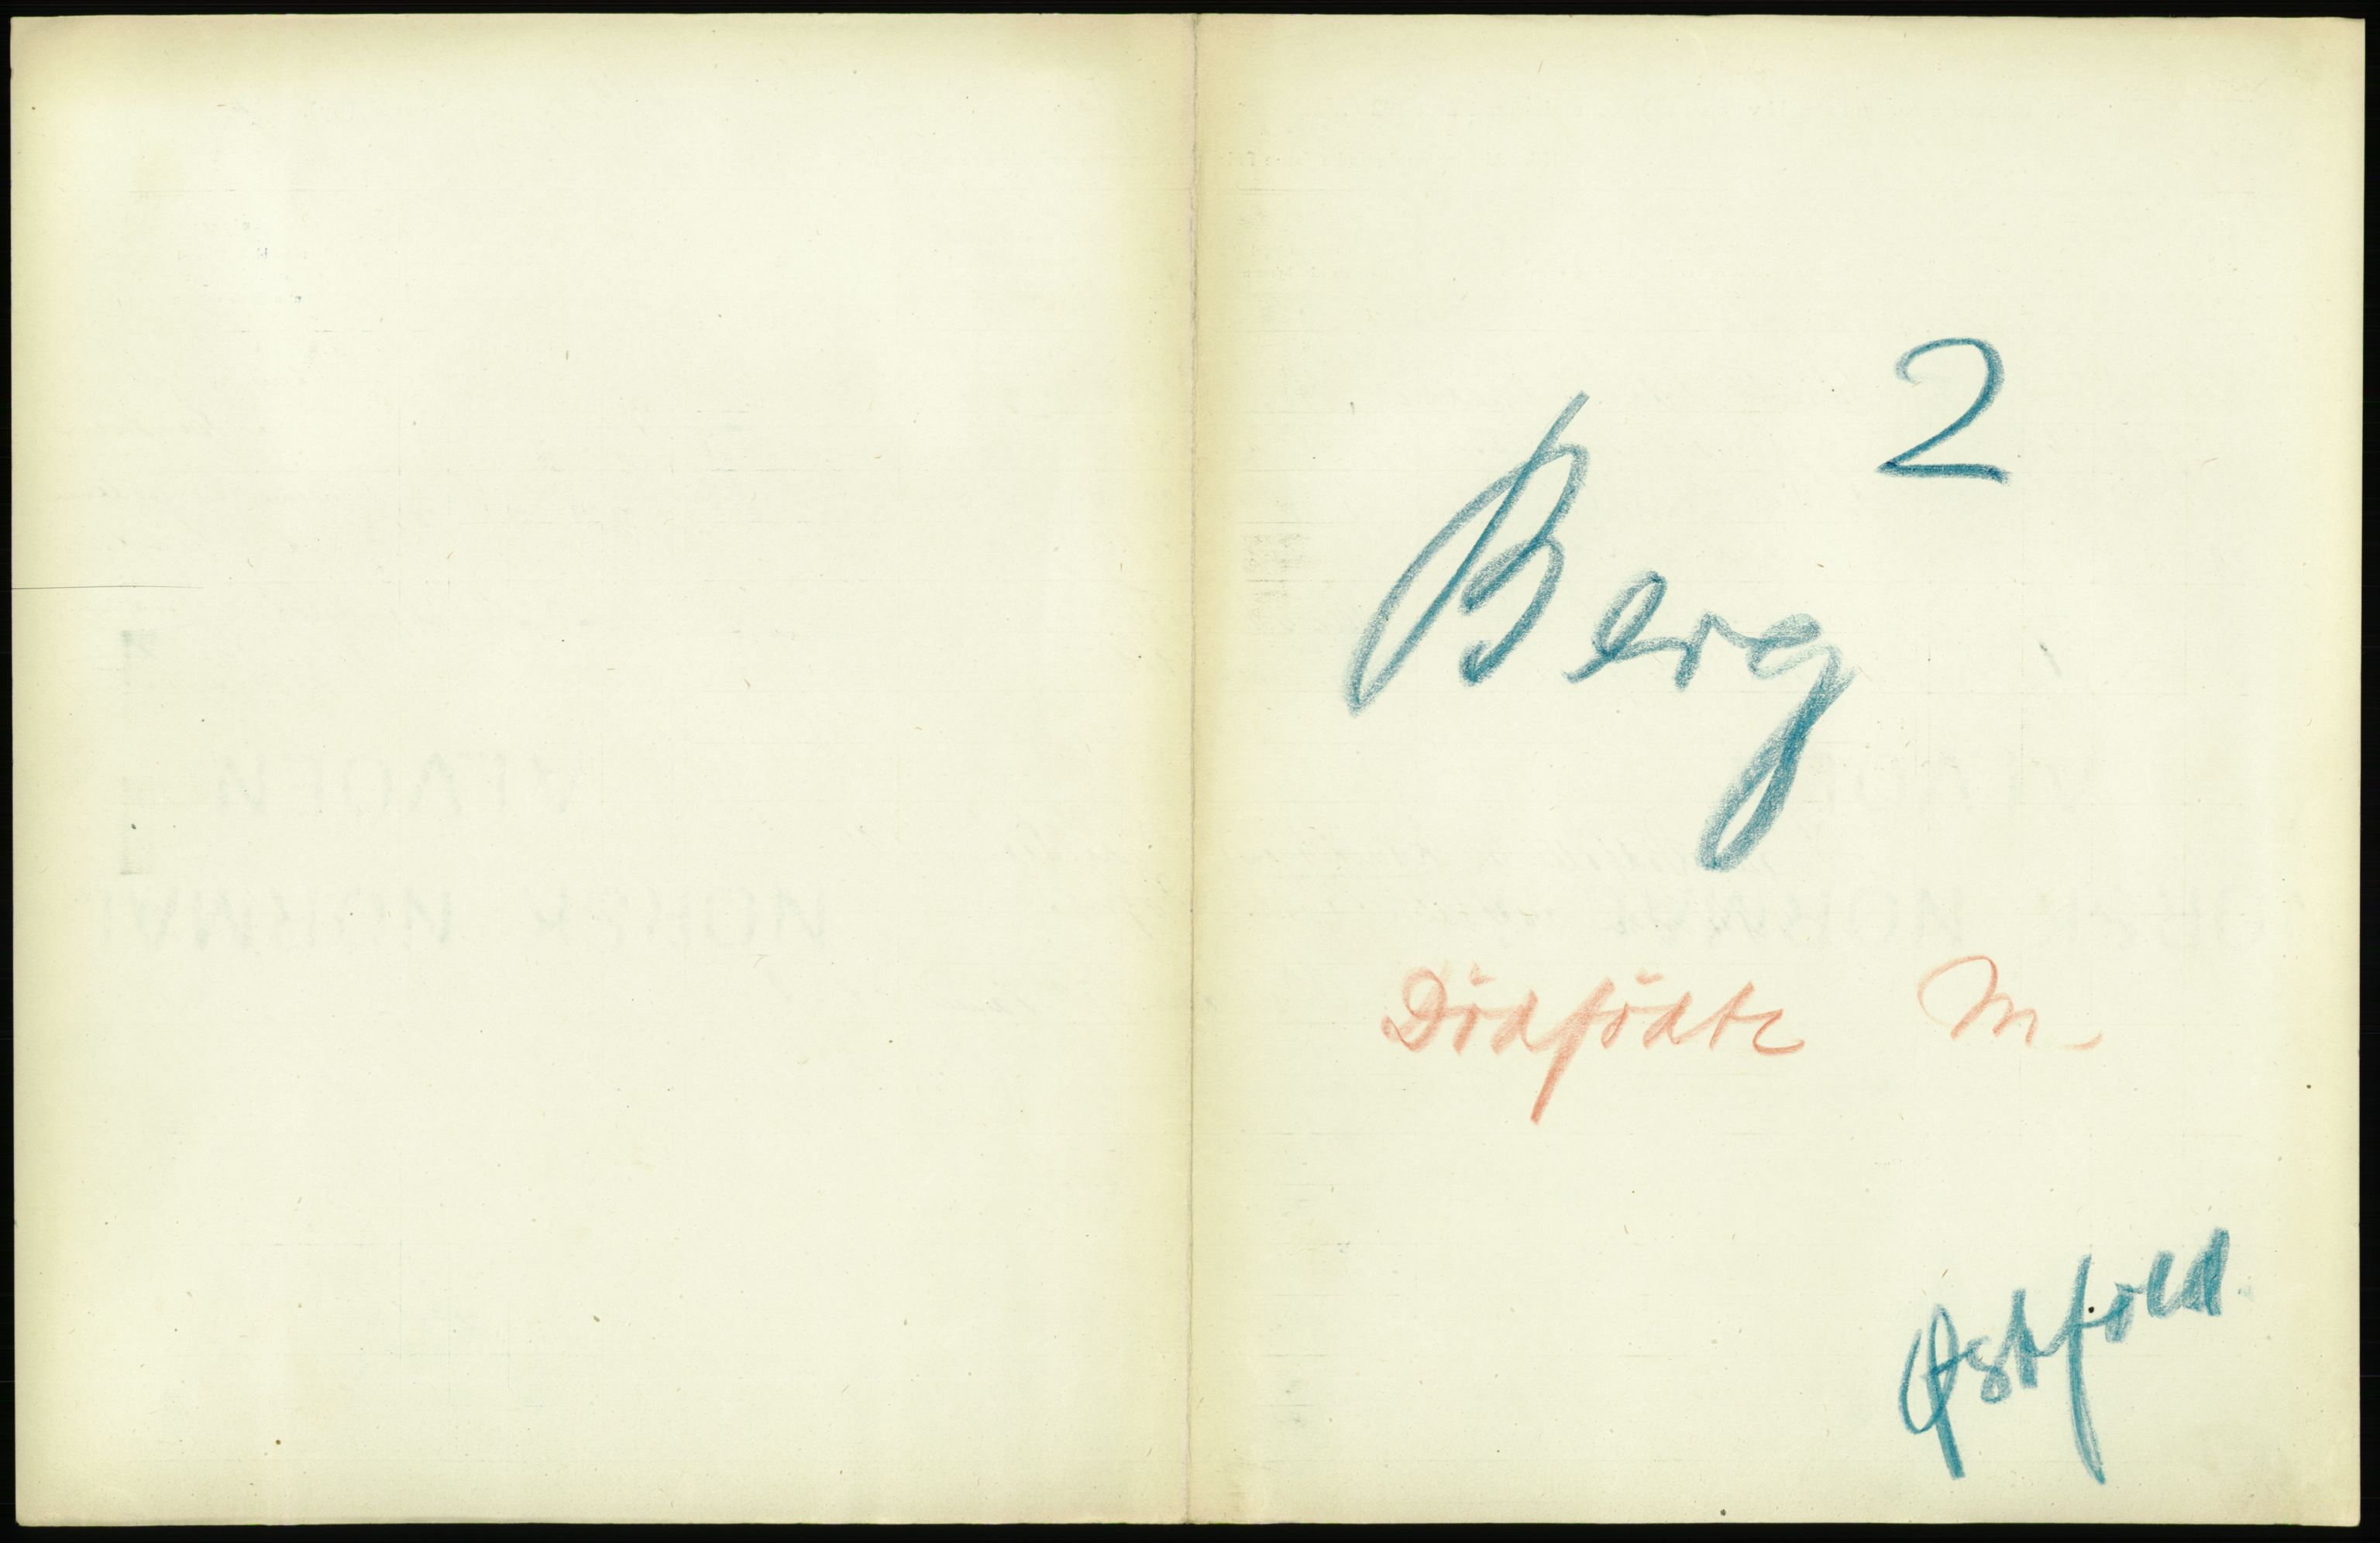 2
Berg
Dödfödte M.
Østfold.